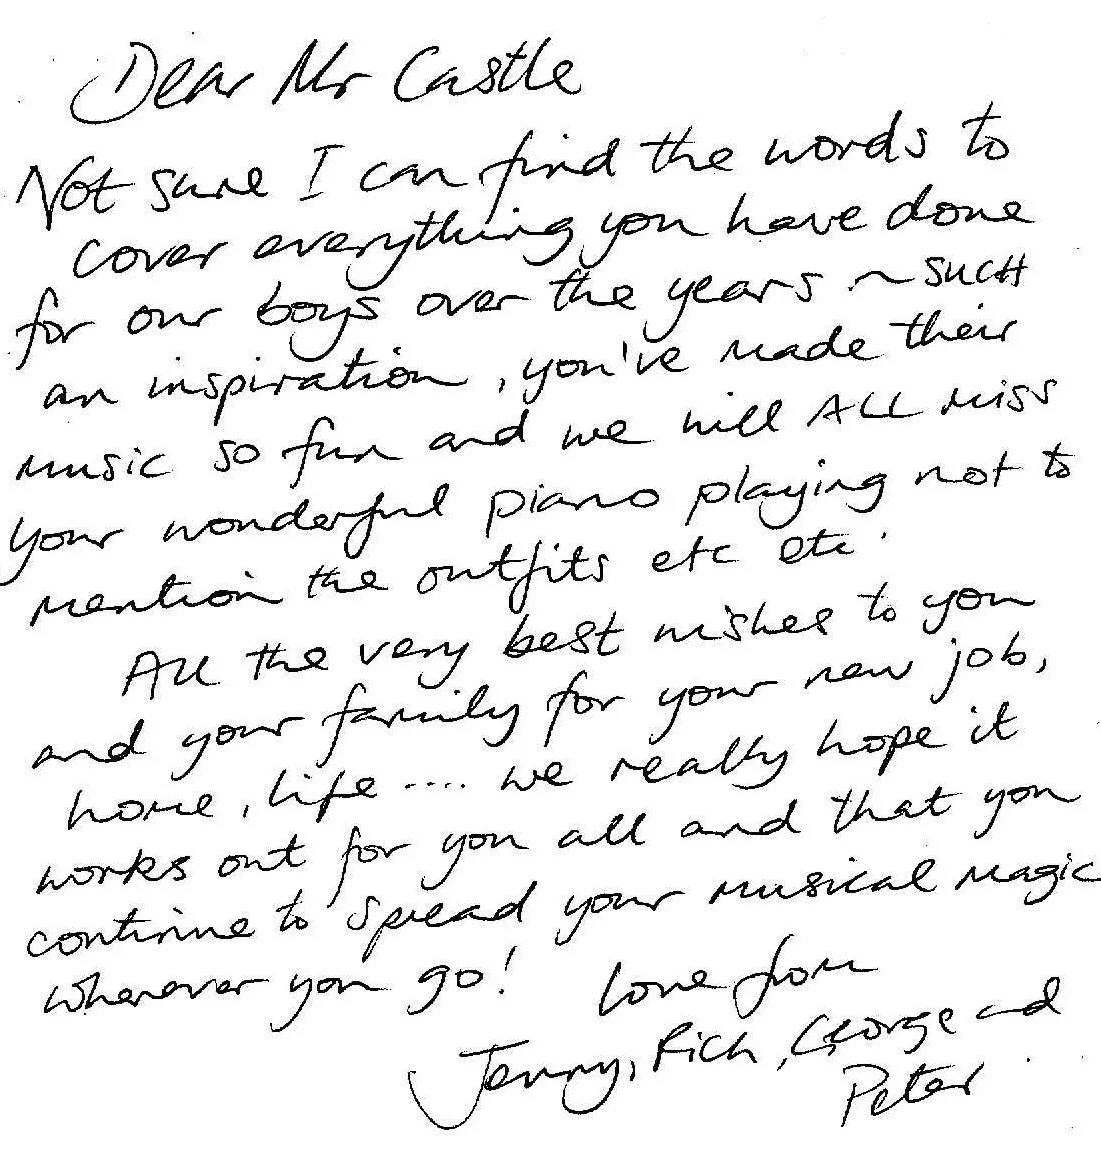 Dear Mr Castle
Not sure I can find the words to
cover everything you have done
for our boys over the years ~ SUCH
an inspiration, you've made their
music so fun and we will ALL miss
your wonderful piano playing not to
mention the outfits etc etc.
All the very best wishes to you
and your family for your new job,
home, life .... we really hope it
works out for you all and that you
continue to spread your musical magic
wherever you go!
Love from
Jenny, Rich, George and
Peter